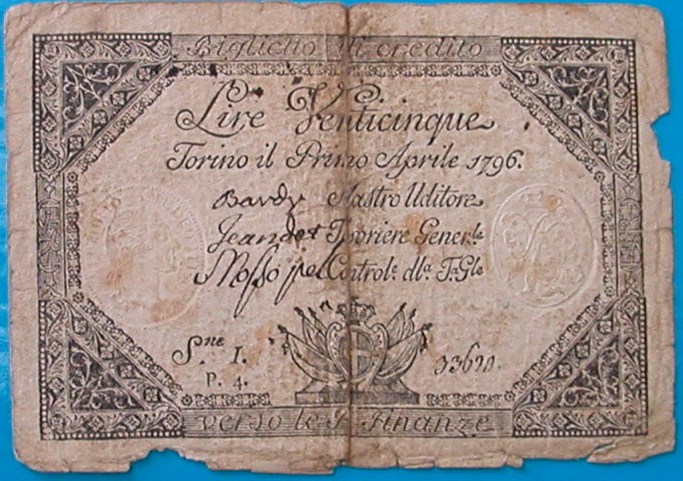 Biglietto di credito
Lire Venticinque
Torino il Primo Aprile 1796.
Bardy Mastro Uditore
Jeandet Tesoriere Gener.le
Mosso pel Control.e dl.a T.a G.le
S.ne I.
P. 4.
verso le R. Finanze